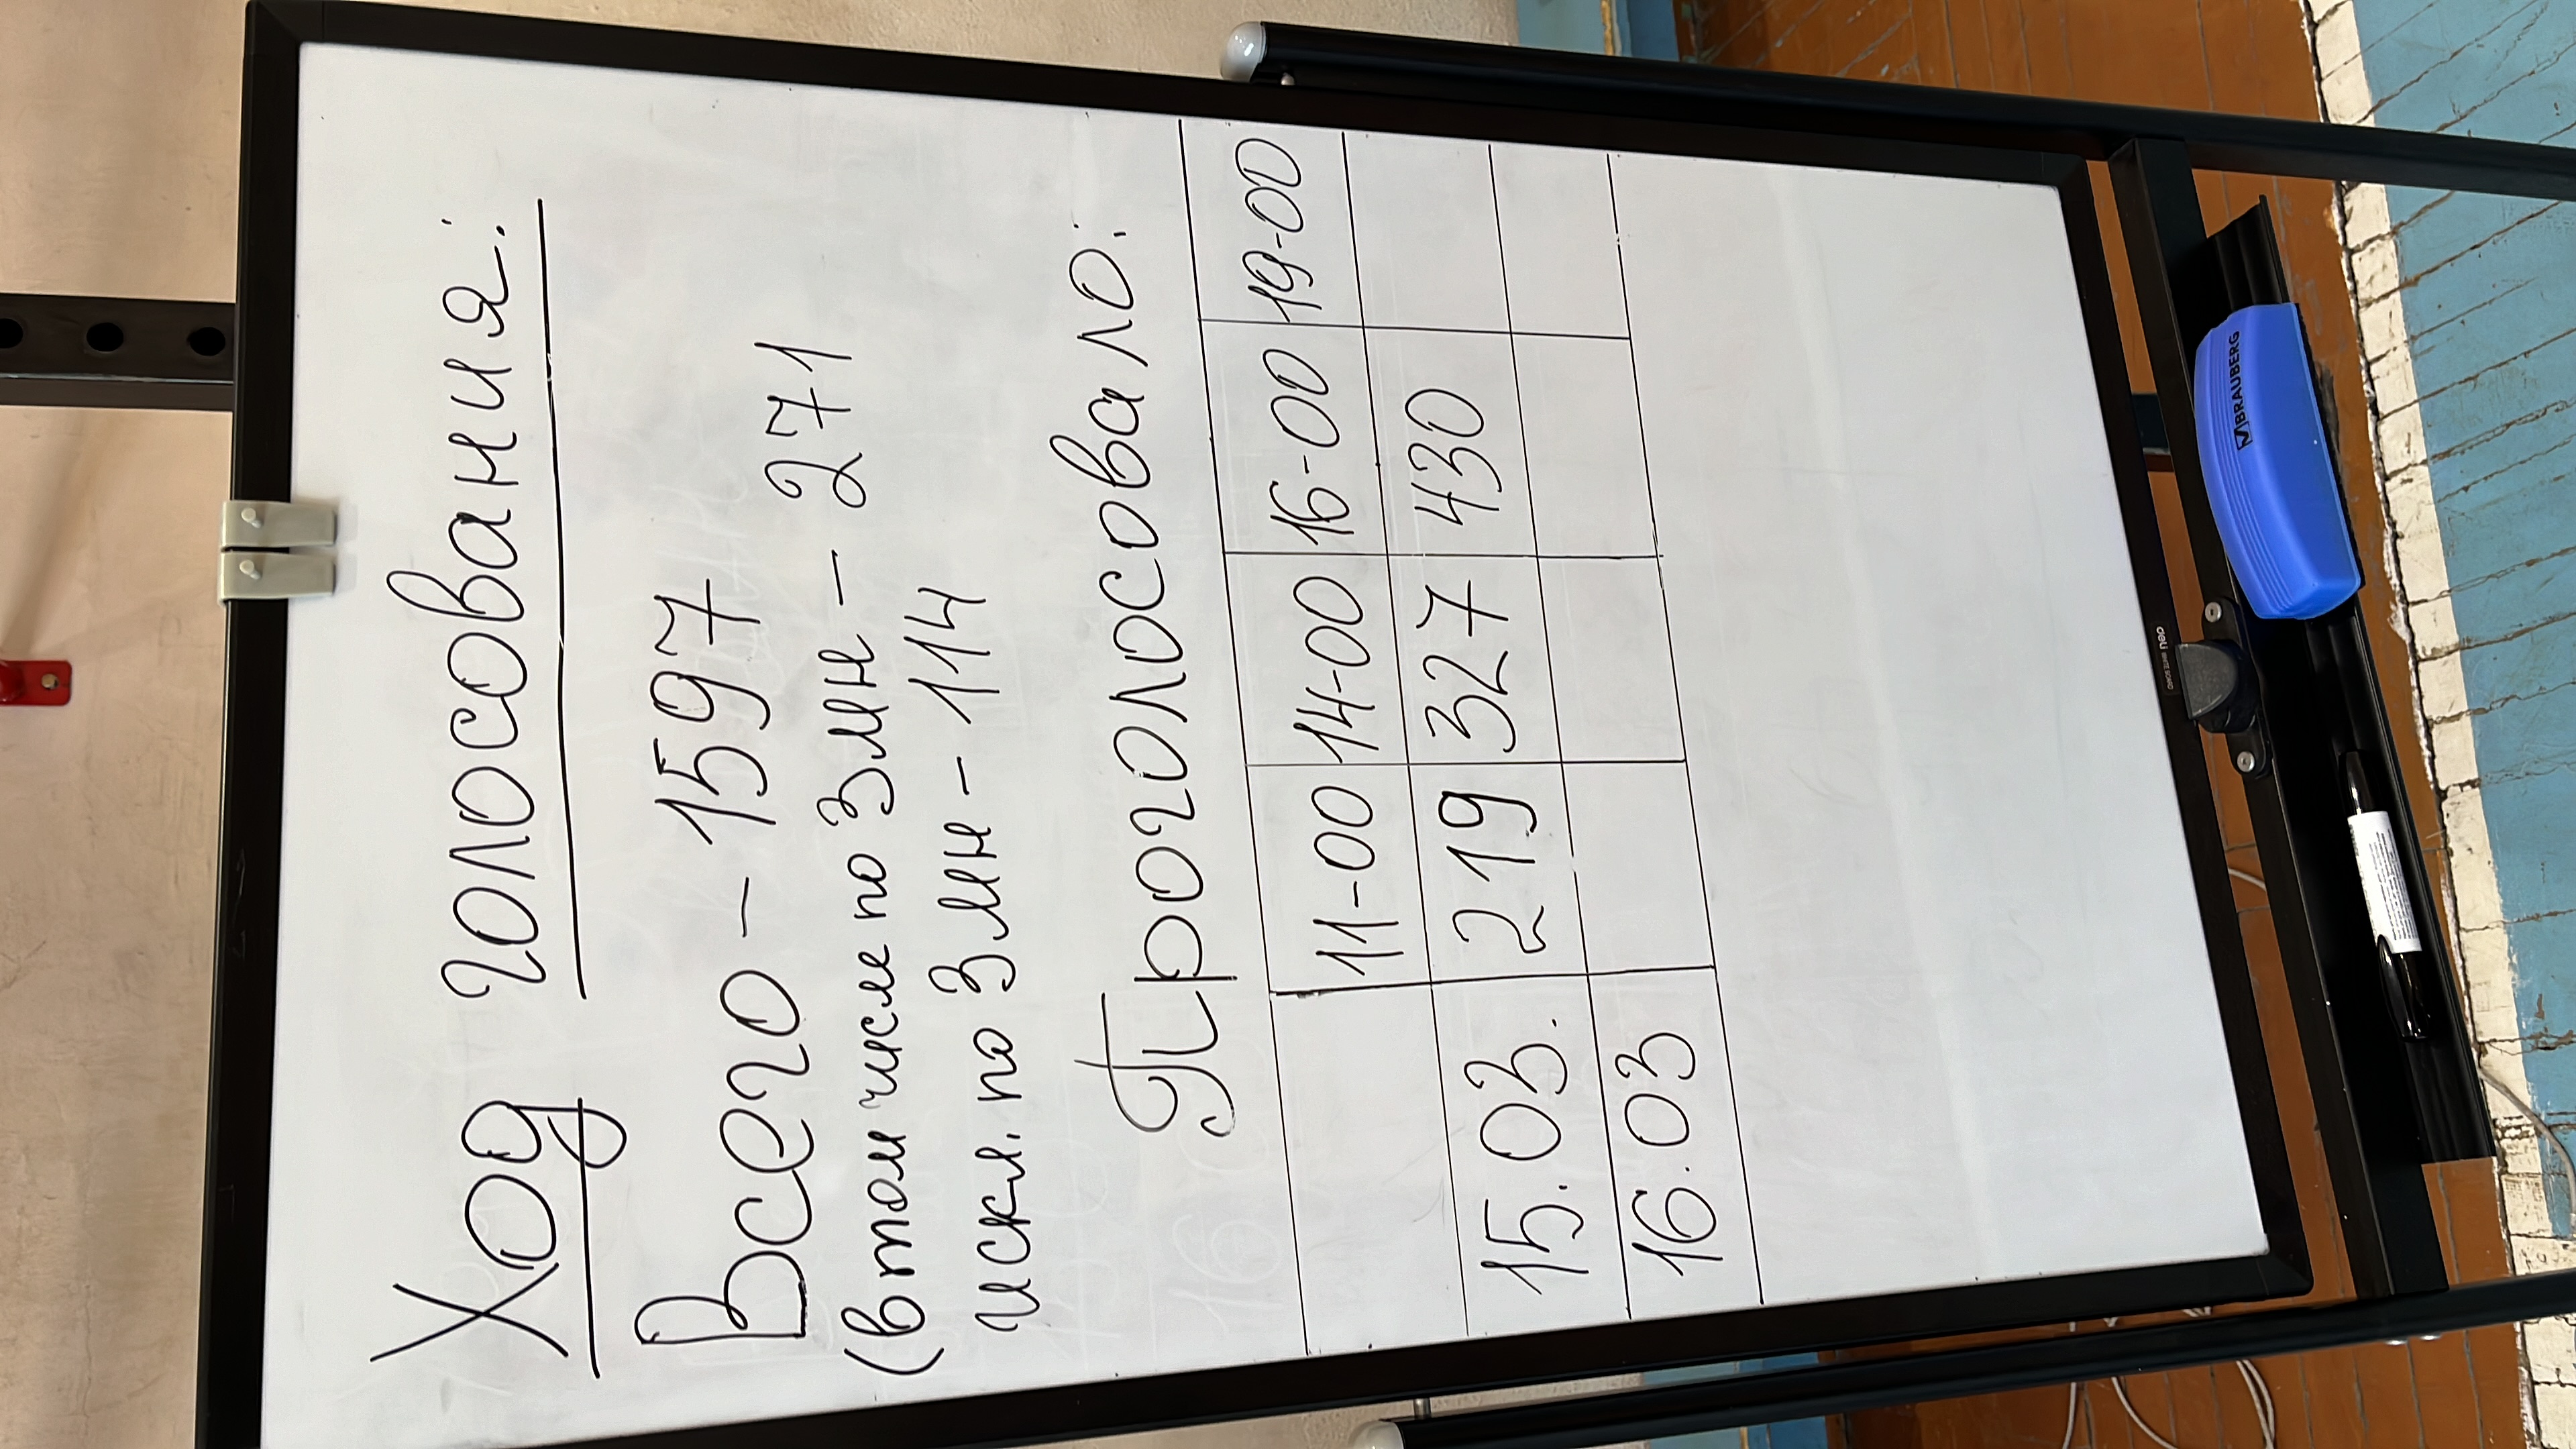 Ход голосования:
Всего - 1597
(в том числе по Змн - 271
искл. по Змн - 114
Проголосовало:
11-00 14-00 16-00 19-00
15.03. 219 327 430
16.03
BRAUBERG
deli